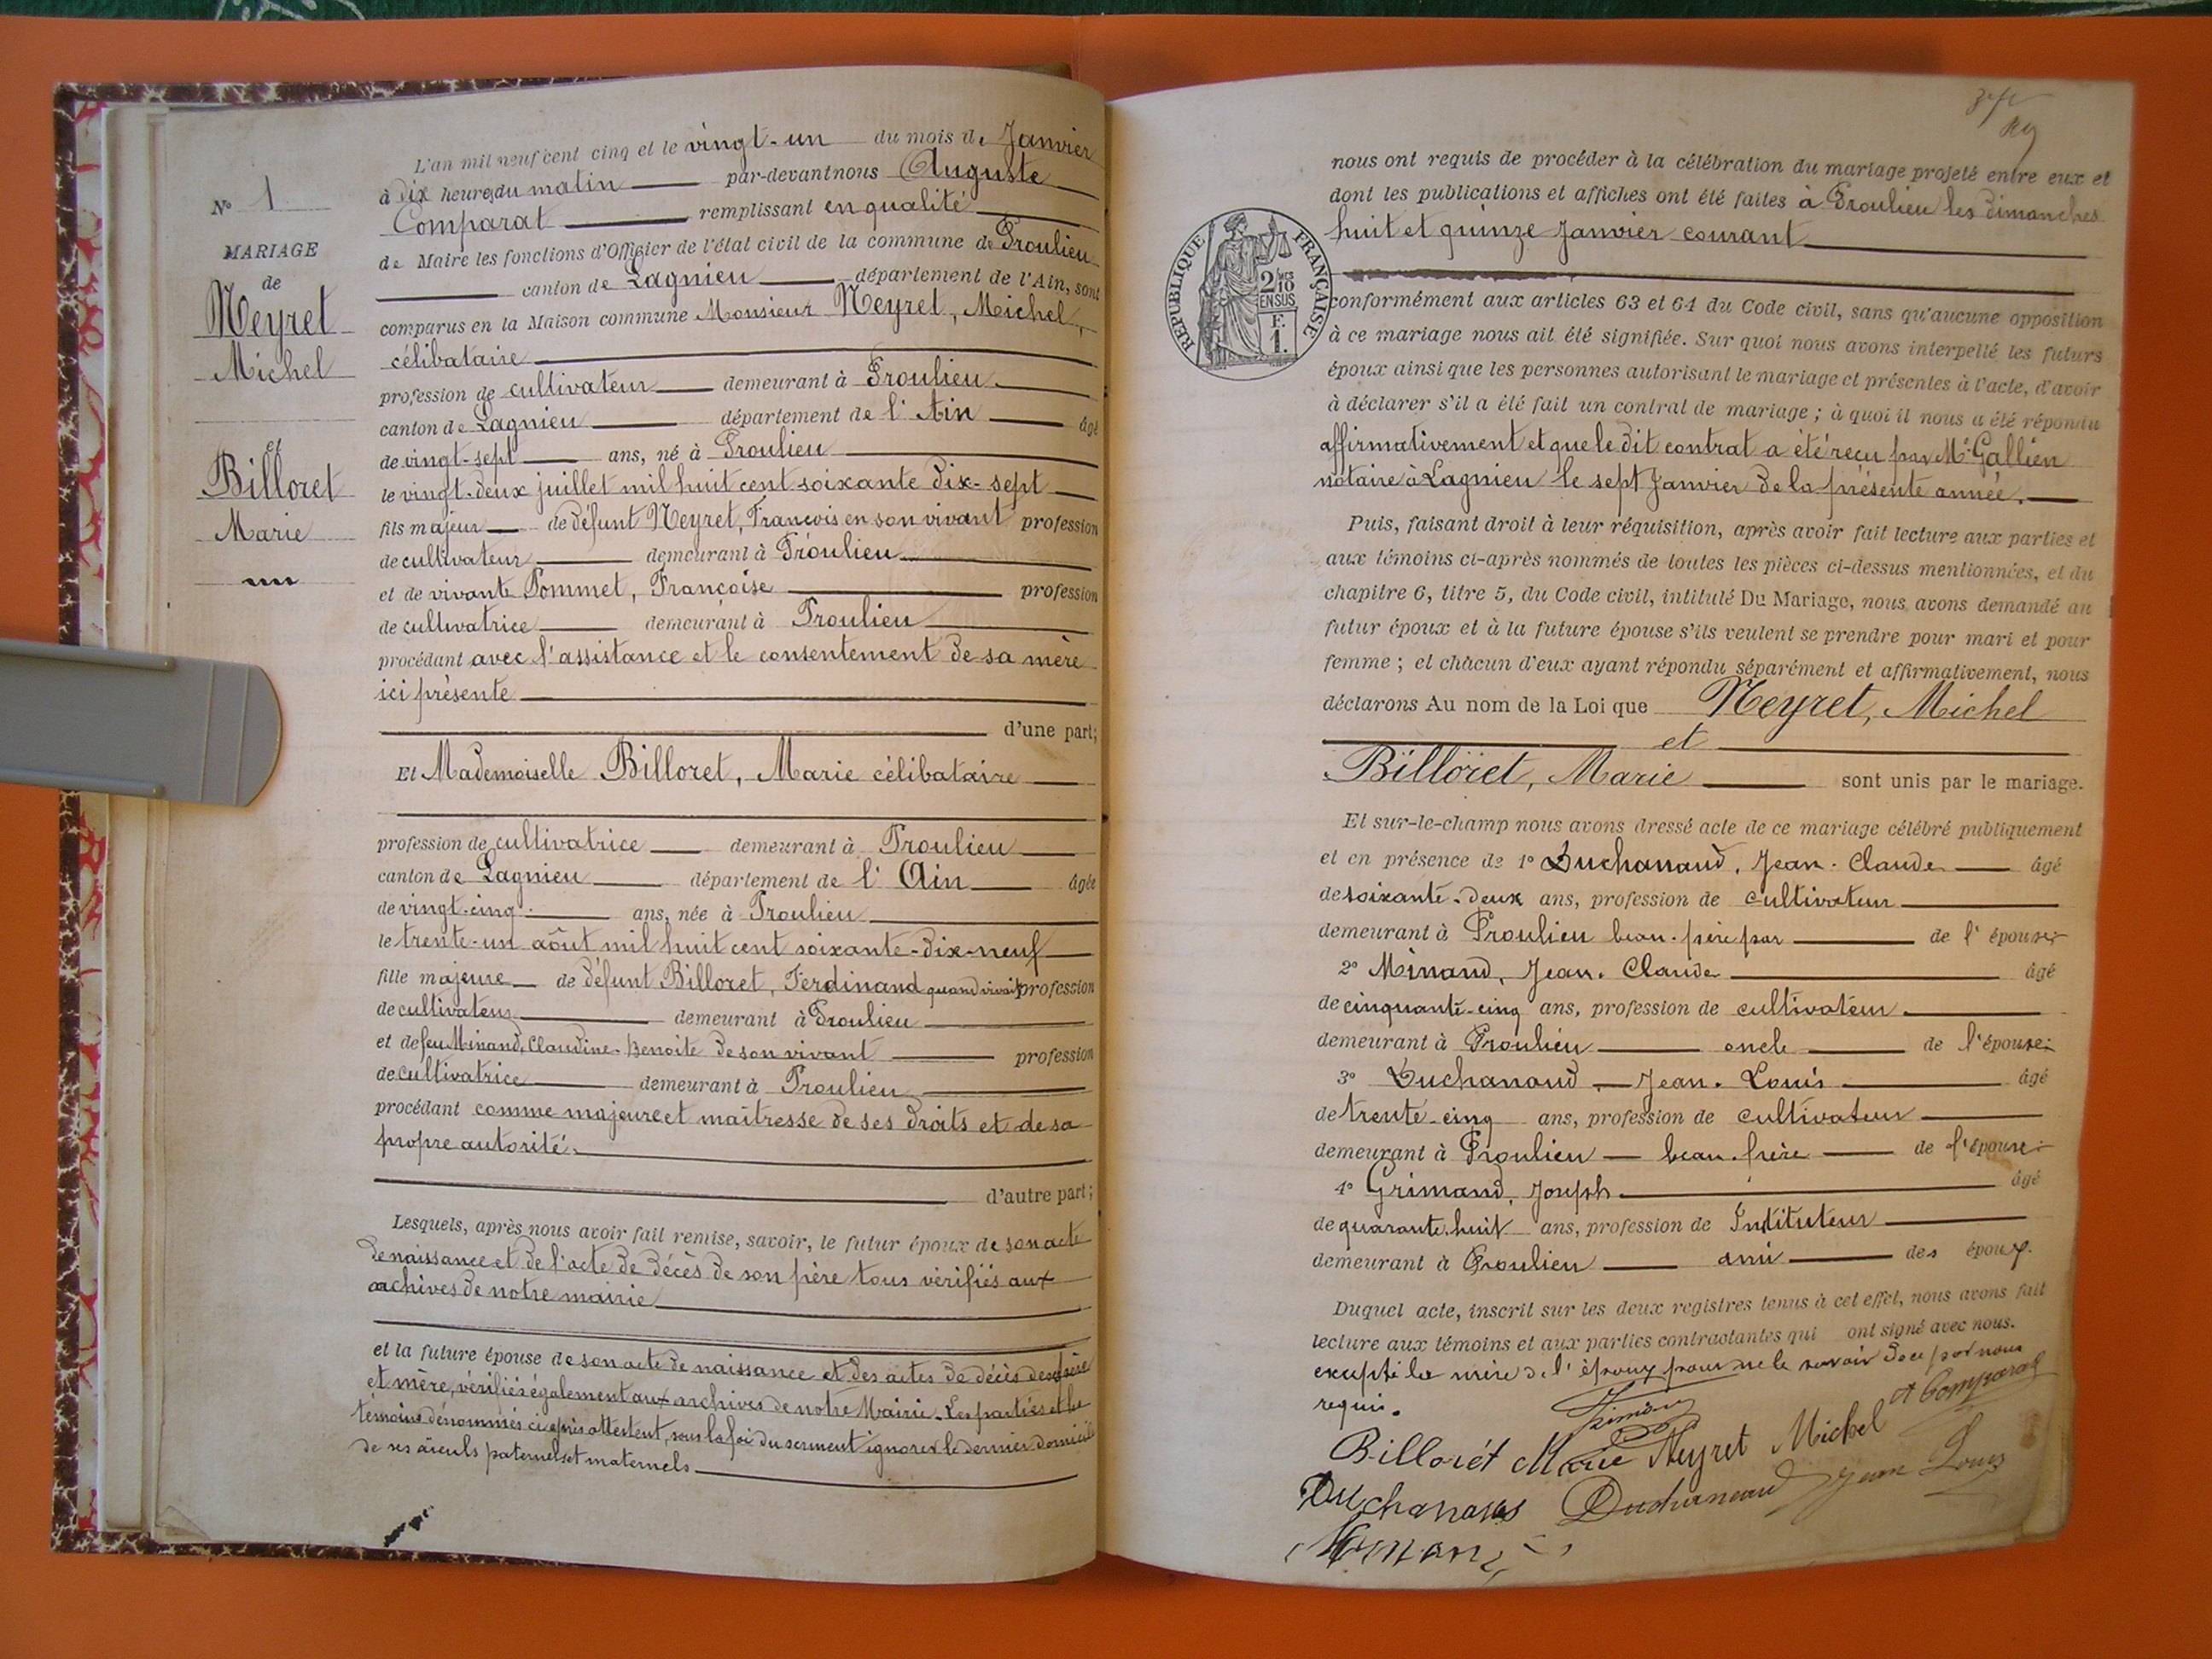 N° 1
MARIAGE
de
Neyret
Michel
et
Billoret
Marie
L'an mil neuf cent cinq et le vingt-un du mois de Janvier
à dix heures du matin par-devant nous Auguste
Comparat remplissant en qualité
de Maire les fonctions d'Officier de l'état civil de la commune de Proulieu
canton de Lagnieu département de l'Ain, sont
comparus en la Maison commune Monsieur Neyret, Michel,
célibataire
profession de cultivateur demeurant à Proulieu
canton de Lagnieu département de l'Ain âgé
de vingt-sept ans, né à Proulieu
le vingt-deux juillet mil huit cent soixante dix-sept
fils majeur de défunt Neyret, François en son vivant profession
de cultivateur demeurant à Proulieu
et de vivante Pommet, Françoise profession
de cultivatrice demeurant à Proulieu
procédant avec l'assistance et le consentement de sa mère
ici présente
d'une part;
Et Mademoiselle Billoret, Marie célibataire
profession de cultivatrice demeurant à Proulieu
canton de Lagnieu département de l'Ain âgée
de vingt-cinq ans, née à Proulieu
le trente-un août mil huit cent soixante-dix-neuf
fille majeure de défunt Billoret, Ferdinand quand vivait profession
de cultivateur demeurant à Proulieu
et de feu Minand, Claudine-Benoite de son vivant profession
de cultivatrice demeurant à Proulieu
procédant comme majeure et maîtresse de ses droits et de sa
propre autorité.
d'autre part;
Lesquels, après nous avoir fait remise, savoir, le futur époux de son acte
de naissance et de l'acte de décès de son père tous vérifiés aux
archives de notre mairie
et la future épouse de son acte de naissance et des actes de décès de ses père
et mère, vérifiés également aux archives de notre Mairie. Les parties et les
témoins dénommés ci après attestent, sous la foi du serment ignorer le dernier domicile
de ses aïeuls paternels et maternels
nous ont requis de procéder à la célébration du mariage projeté entre eux et
dont les publications et affiches ont été faites à Proulieu les dimanches
huit et quinze Janvier courant
RÉPUBLIQUE FRANÇAISE
2/10
EN SUS
F.
1.
conformément aux articles 63 et 64 du Code civil, sans qu'aucune opposition
à ce mariage nous ait été signifiée. Sur quoi nous avons interpellé les futurs
époux ainsi que les personnes autorisant le mariage et présentes à l'acte, d'avoir
à déclarer s'il a été fait un contrat de mariage; à quoi il nous a été répondu
affirmativement et que le dit contrat a été reçu par Me Gallien
notaire à Lagnieu le sept Janvier de la présente année.
Puis, faisant droit à leur réquisition, après avoir fait lecture aux parties et
aux témoins ci-après nommés de toutes les pièces ci-dessus mentionnées, et du
chapitre 6, titre 5, du Code civil, intitulé Du Mariage, nous avons demandé au
futur époux et à la future épouse s'ils veulent se prendre pour mari et pour
femme; et chacun d'eux ayant répondu séparément et affirmativement, nous
déclarons Au nom de la Loi que Neyret, Michel
et
Billoret, Marie sont unis par le mariage.
Et sur-le-champ nous avons dressé acte de ce mariage célébré publiquement
et en présence de 1° Duchanaud, Jean-Claude âgé
de soixante-deux ans, profession de cultivateur
demeurant à Proulieu beau-père par de l'épouse;
2° Minand, Jean-Claude âgé
de cinquante-cinq ans, profession de cultivateur
demeurant à Proulieu oncle de l'épouse;
3° Duchanaud Jean-Louis âgé
de trente-cinq ans, profession de cultivateur
demeurant à Proulieu beau-frère de l'épouse;
4° Grimand, Joseph âgé
de quarante-huit ans, profession de Instituteur
demeurant à Proulieu ami des époux.
Duquel acte, inscrit sur les deux registres tenus à cet effet, nous avons fait
lecture aux témoins et aux parties contractantes qui ont signé avec nous.
excepté la mère de l'époux pour ne le savoir de ce par nous
requis.
A Comparat
Billorét Marie Neyret Michel
Jean Louis